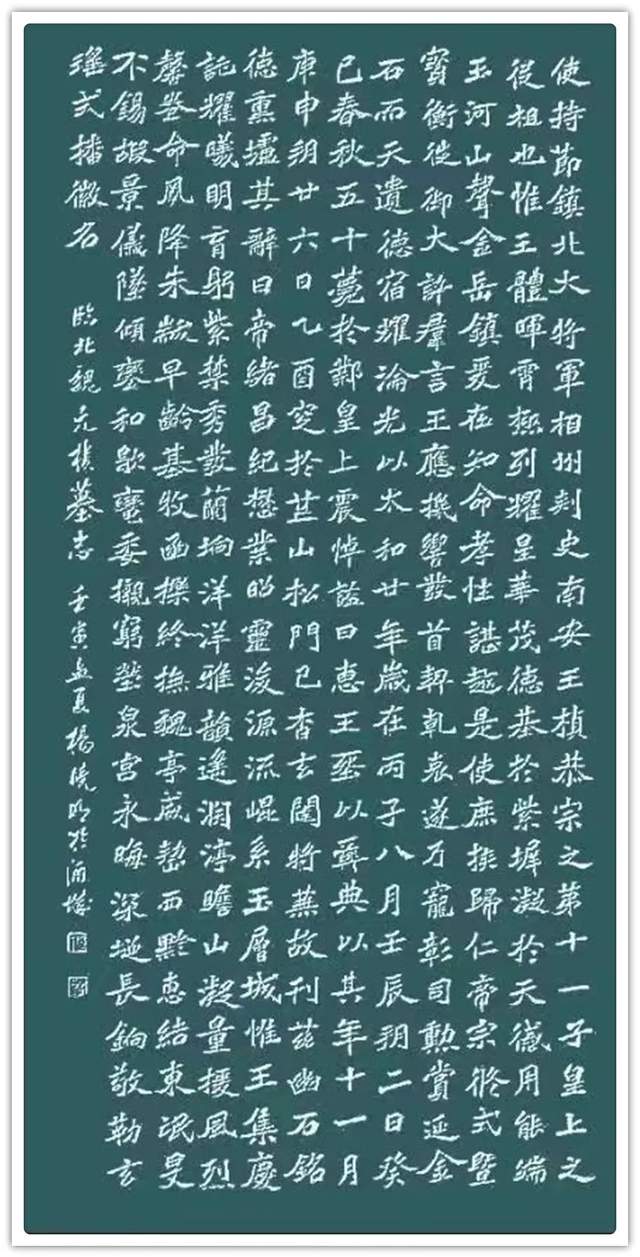 使持節鎮北大將軍相州刺史南安王楨恭宗之第十一子皇上之
從祖也惟王體暉霄極列耀星華茂德基於紫墀凝於天感用能端
玉河山聲金岳鎮爰在知命孝性諶越是使庶族歸仁帝宗脩式暨
寶衡徙御大訊羣言王應機響發首契乾衷遂乃寵彰司勳賞延金
石而天遺德宿耀淪光以太和廿年歲在丙子八月壬辰朔二日癸
巳春秋五十薨於鄴皇上震悼諡曰惠王葬以彝典以其年十一月
庚申朔廿六日乙酉窆於芒山松門已杳玄闥將蕪故刊茲幽石銘
德熏壚其辭曰帝緒昌紀懋業昭靈浚源流崐系玉層城惟王集慶
託耀曦明育躬紫禁秀發蘭坰洋洋雅韻遙淵渟瞻山凝量援風烈
馨卷命夙降朱黻早齡基牧函櫟終撫魏亭威慹西黠惠結東氓旻
不錫嘏景儀墜傾鑾和歇轡委櫬窮塋泉宮永晦深埏長敬勒玄
瑤式播徽名
臨北魏元楨墓志 壬寅孟夏楊曉明於酒城